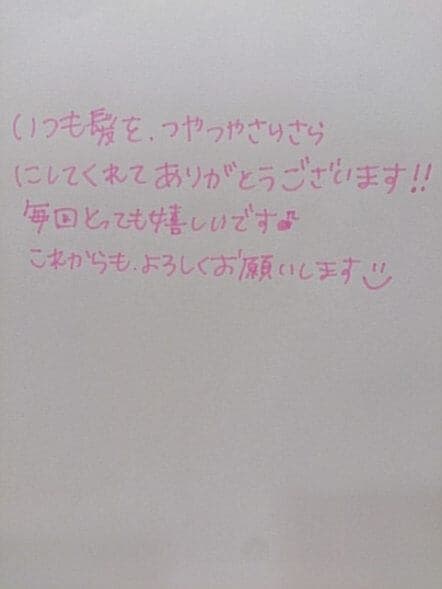 いつも髪を、つやつやさらさら
にしてくれてありがとうございます!!
毎回とっても嬉しいです♪
これからも、よろしくお願いします